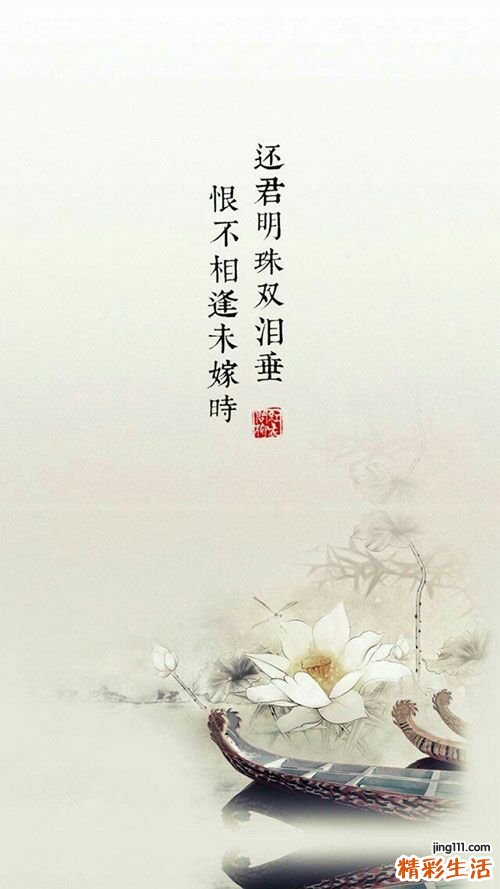 还君明珠双泪垂
恨不相逢未嫁時
jing111.com
精彩生活